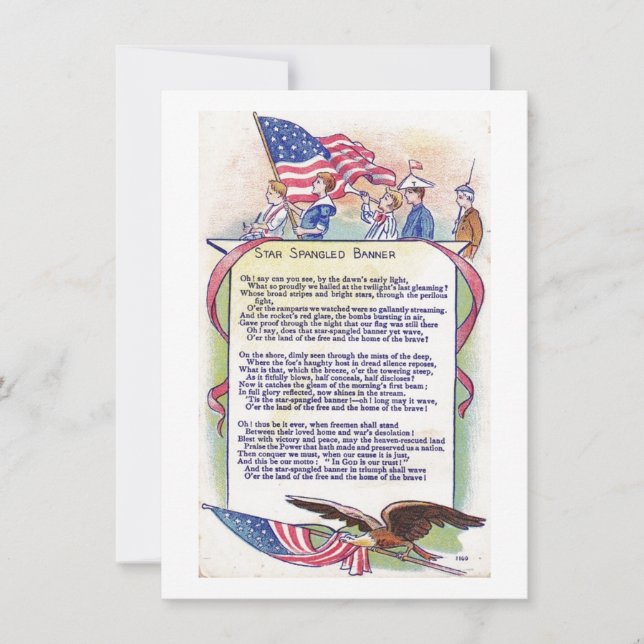 STAR SPANGLED BANNER
Oh! say can you see, by the dawn's early light,
What so proudly we hailed at the twilight's last gleaming?
Whose broad stripes and bright stars, through the perilous
fight,
O'er the ramparts we watched were so gallantly streaming.
And the rocket's red glare, the bombs bursting in air,
Gave proof through the night that our flag was still there
Oh! say, does that star-spangled banner yet wave,
O'er the land of the free and the home of the brave?
On the shore, dimly seen through the mists of the deep,
Where the foe's haughty host in dread silence reposes,
What is that, which the breeze, o'er the towering steep,
As it fitfully blows, half conceals, half discloses?
Now it catches the gleam of the morning's first beam;
In full glory reflected, now shines in the stream.
'Tis the star-spangled banner!—oh! long may it wave,
O'er the land of the free and the home of the brave!
Oh! thus be it ever, when freemen shall stand
Between their loved home and war's desolation!
Blest with victory and peace, may the heaven-rescued land
Praise the Power that hath made and preserved us a nation.
Then conquer we must, when our cause it is just,
And this be our motto: "In God is our trust!"
And the star-spangled banner in triumph shall wave
O'er the land of the free and the home of the brave!
1160